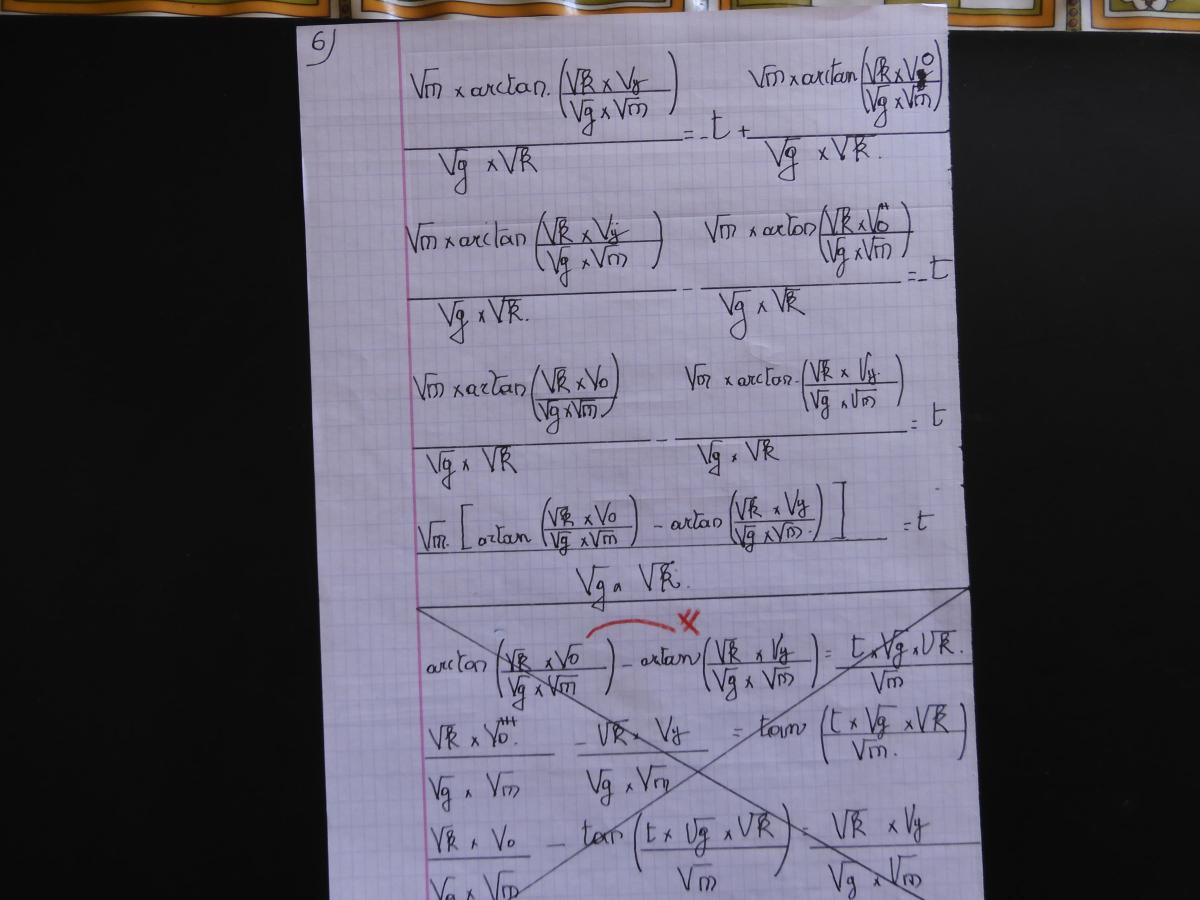 6)
√m × arctan. (√k × Vy / √g × √m) / √g × √k = -t + √m × arctan (√k × V0 / √g × √m) / √g × √k.
√m × arctan (√k × Vy / √g × √m) / √g × √k. - √m × arctan (√k × V0 / √g × √m) / √g × √k = -t
√m × arctan (√k × V0 / √g × √m) / √g × √k - √m × arctan. (√k × Vy / √g × √m) / √g × √k = t
√m. [arctan (√k × V0 / √g × √m) - arctan (√k × Vy / √g × √m.)] / √g × √k. = t
arctan (√k × V0 / √g × √m) - arctan (√k × Vy / √g × √m) = t × √g × √k. / √m
√k × V0. / √g × √m - √k × Vy / √g × √m = tan (t × √g × √k / √m.)
√k × V0 / √g × √m - tan (t × √g × √k / √m) = √k × Vy / √g × √m